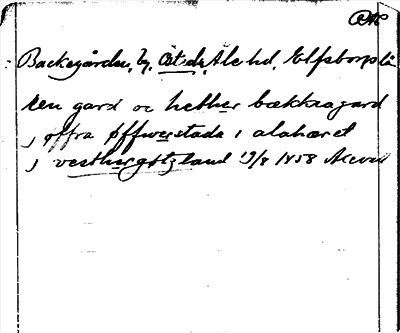 Backegården, by, Östad, Ale hd, Elfsborgs lä
een gard oc hether bækkiagard
j øffra øffwerstada i alahæret
j vesthergøtzland 19/8 1458